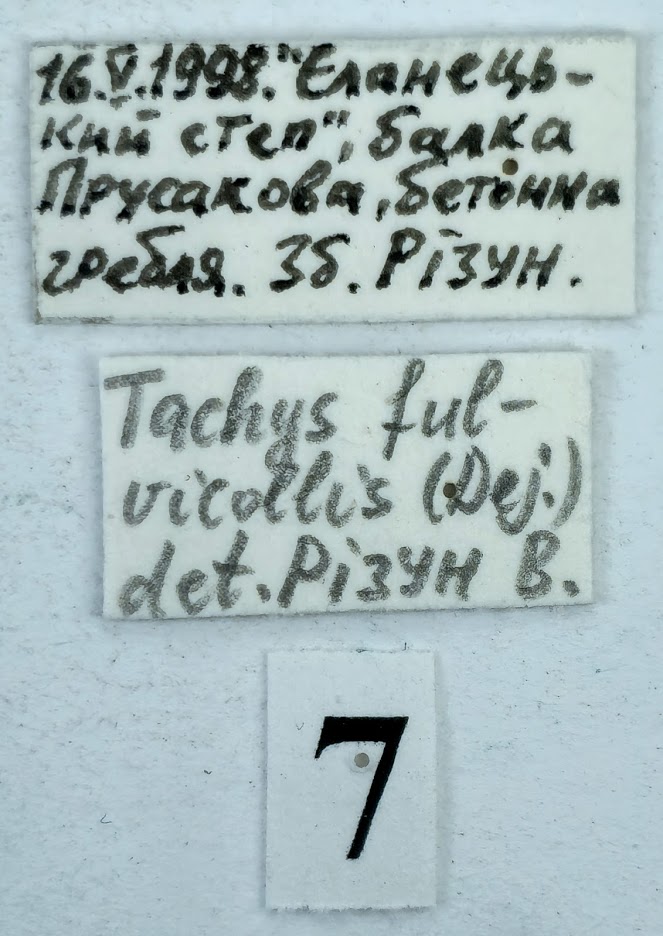 16.V.1998. "Єланець-
кий степ", балка
Прусакова, бетонна
гребля. Зб. Різун.
Tachys ful-
vicollis (Dej.)
det. Різун В.
7